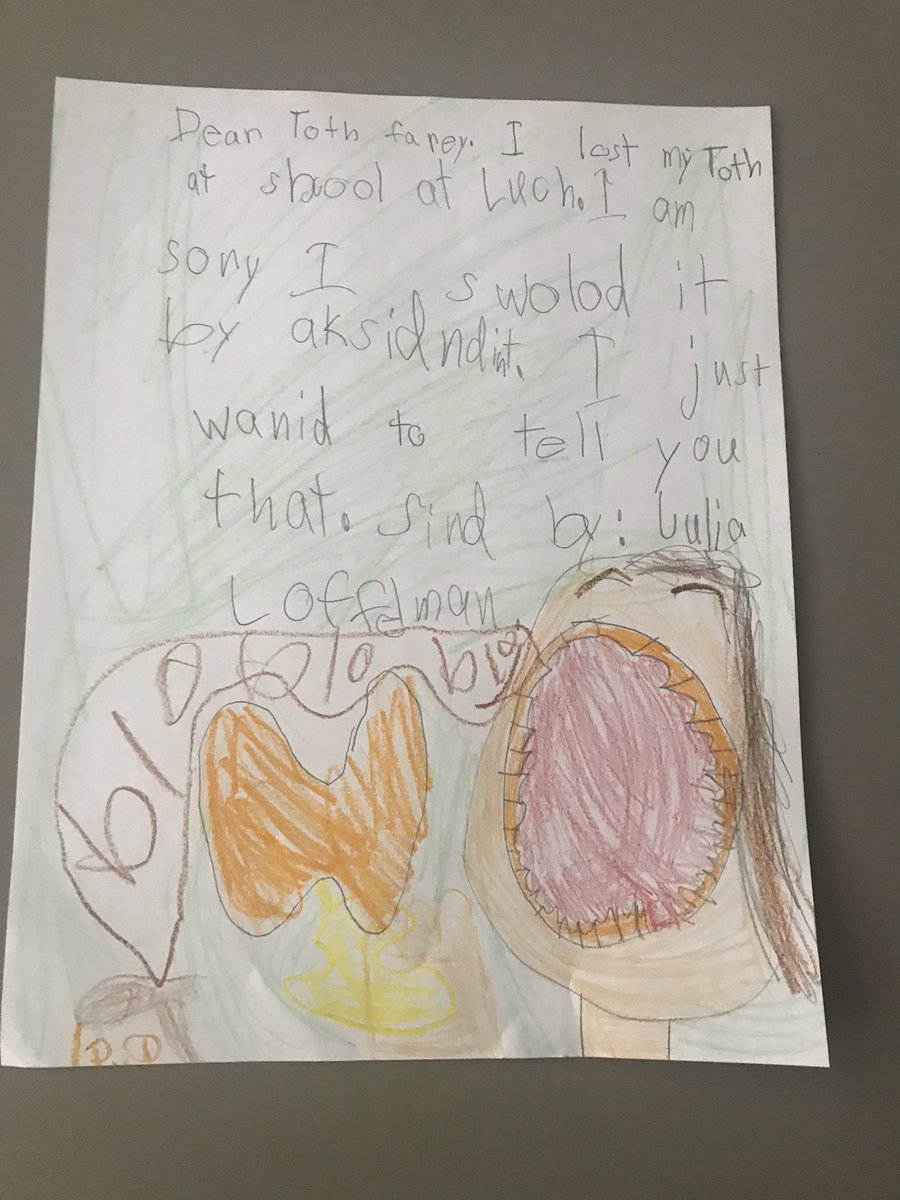 Dear Toth farey. I lost my Toth
at skool at Luch. I am
sory I swolod it
by aksidndint. I just
wanid to tell you
that. Sind by: Lulia
Loffdman
blo blo blo